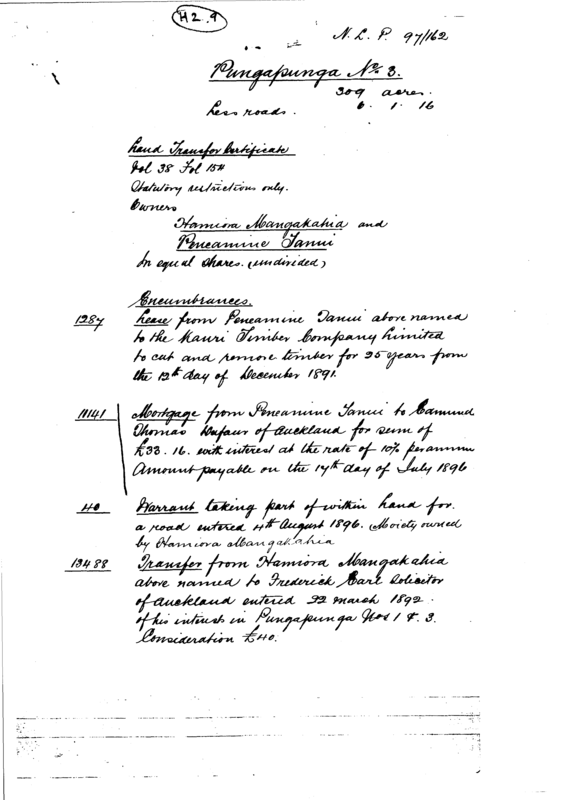 H2.9
N. L. P. 97/162
Pungapunga No 3.
309 acres.
Less roads. 6. 1. 16
Land Transfer Certificate
Vol 38 Fol 154
Statutory restrictions only.
Owners
Hamiora Mangakahia and
Peneamine Tanui
In equal shares. (undivided)
Encumbrances.
1287 Lease from Peneamine Tanui above named
to the Kauri Timber Company Limited
to cut and remove timber for 25 years from
the 12th day of December 1891.
11141 Mortgage from Peneamine Tanui to Edmund
Thomas Dufaur of Auckland for sum of
£33. 16. with interest at the rate of 10% per annum
Amount payable on the 14th day of July 1896
40 Warrant taking part of within land for
a road entered 4th August 1896. (Moiety owned
by Hamiora Mangakahia
13488 Transfer from Hamiora Mangakahia
above named to Frederick Earl Solicitor
of Auckland entered 22 March 1892.
of his interest in Pungapunga Nos 1 & 3.
Consideration £40.